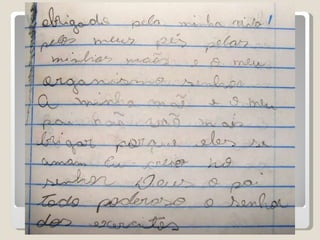 obrigado pela minha vida!
pelos meus pés pelas
minhas mãos e o meu
organismo senhor
a minha mãe e o meu
pai não vão mais
brigar porque eles se
amam Eu creio no
senhor Deus o pai
todo poderoso o senhor
dos exercites